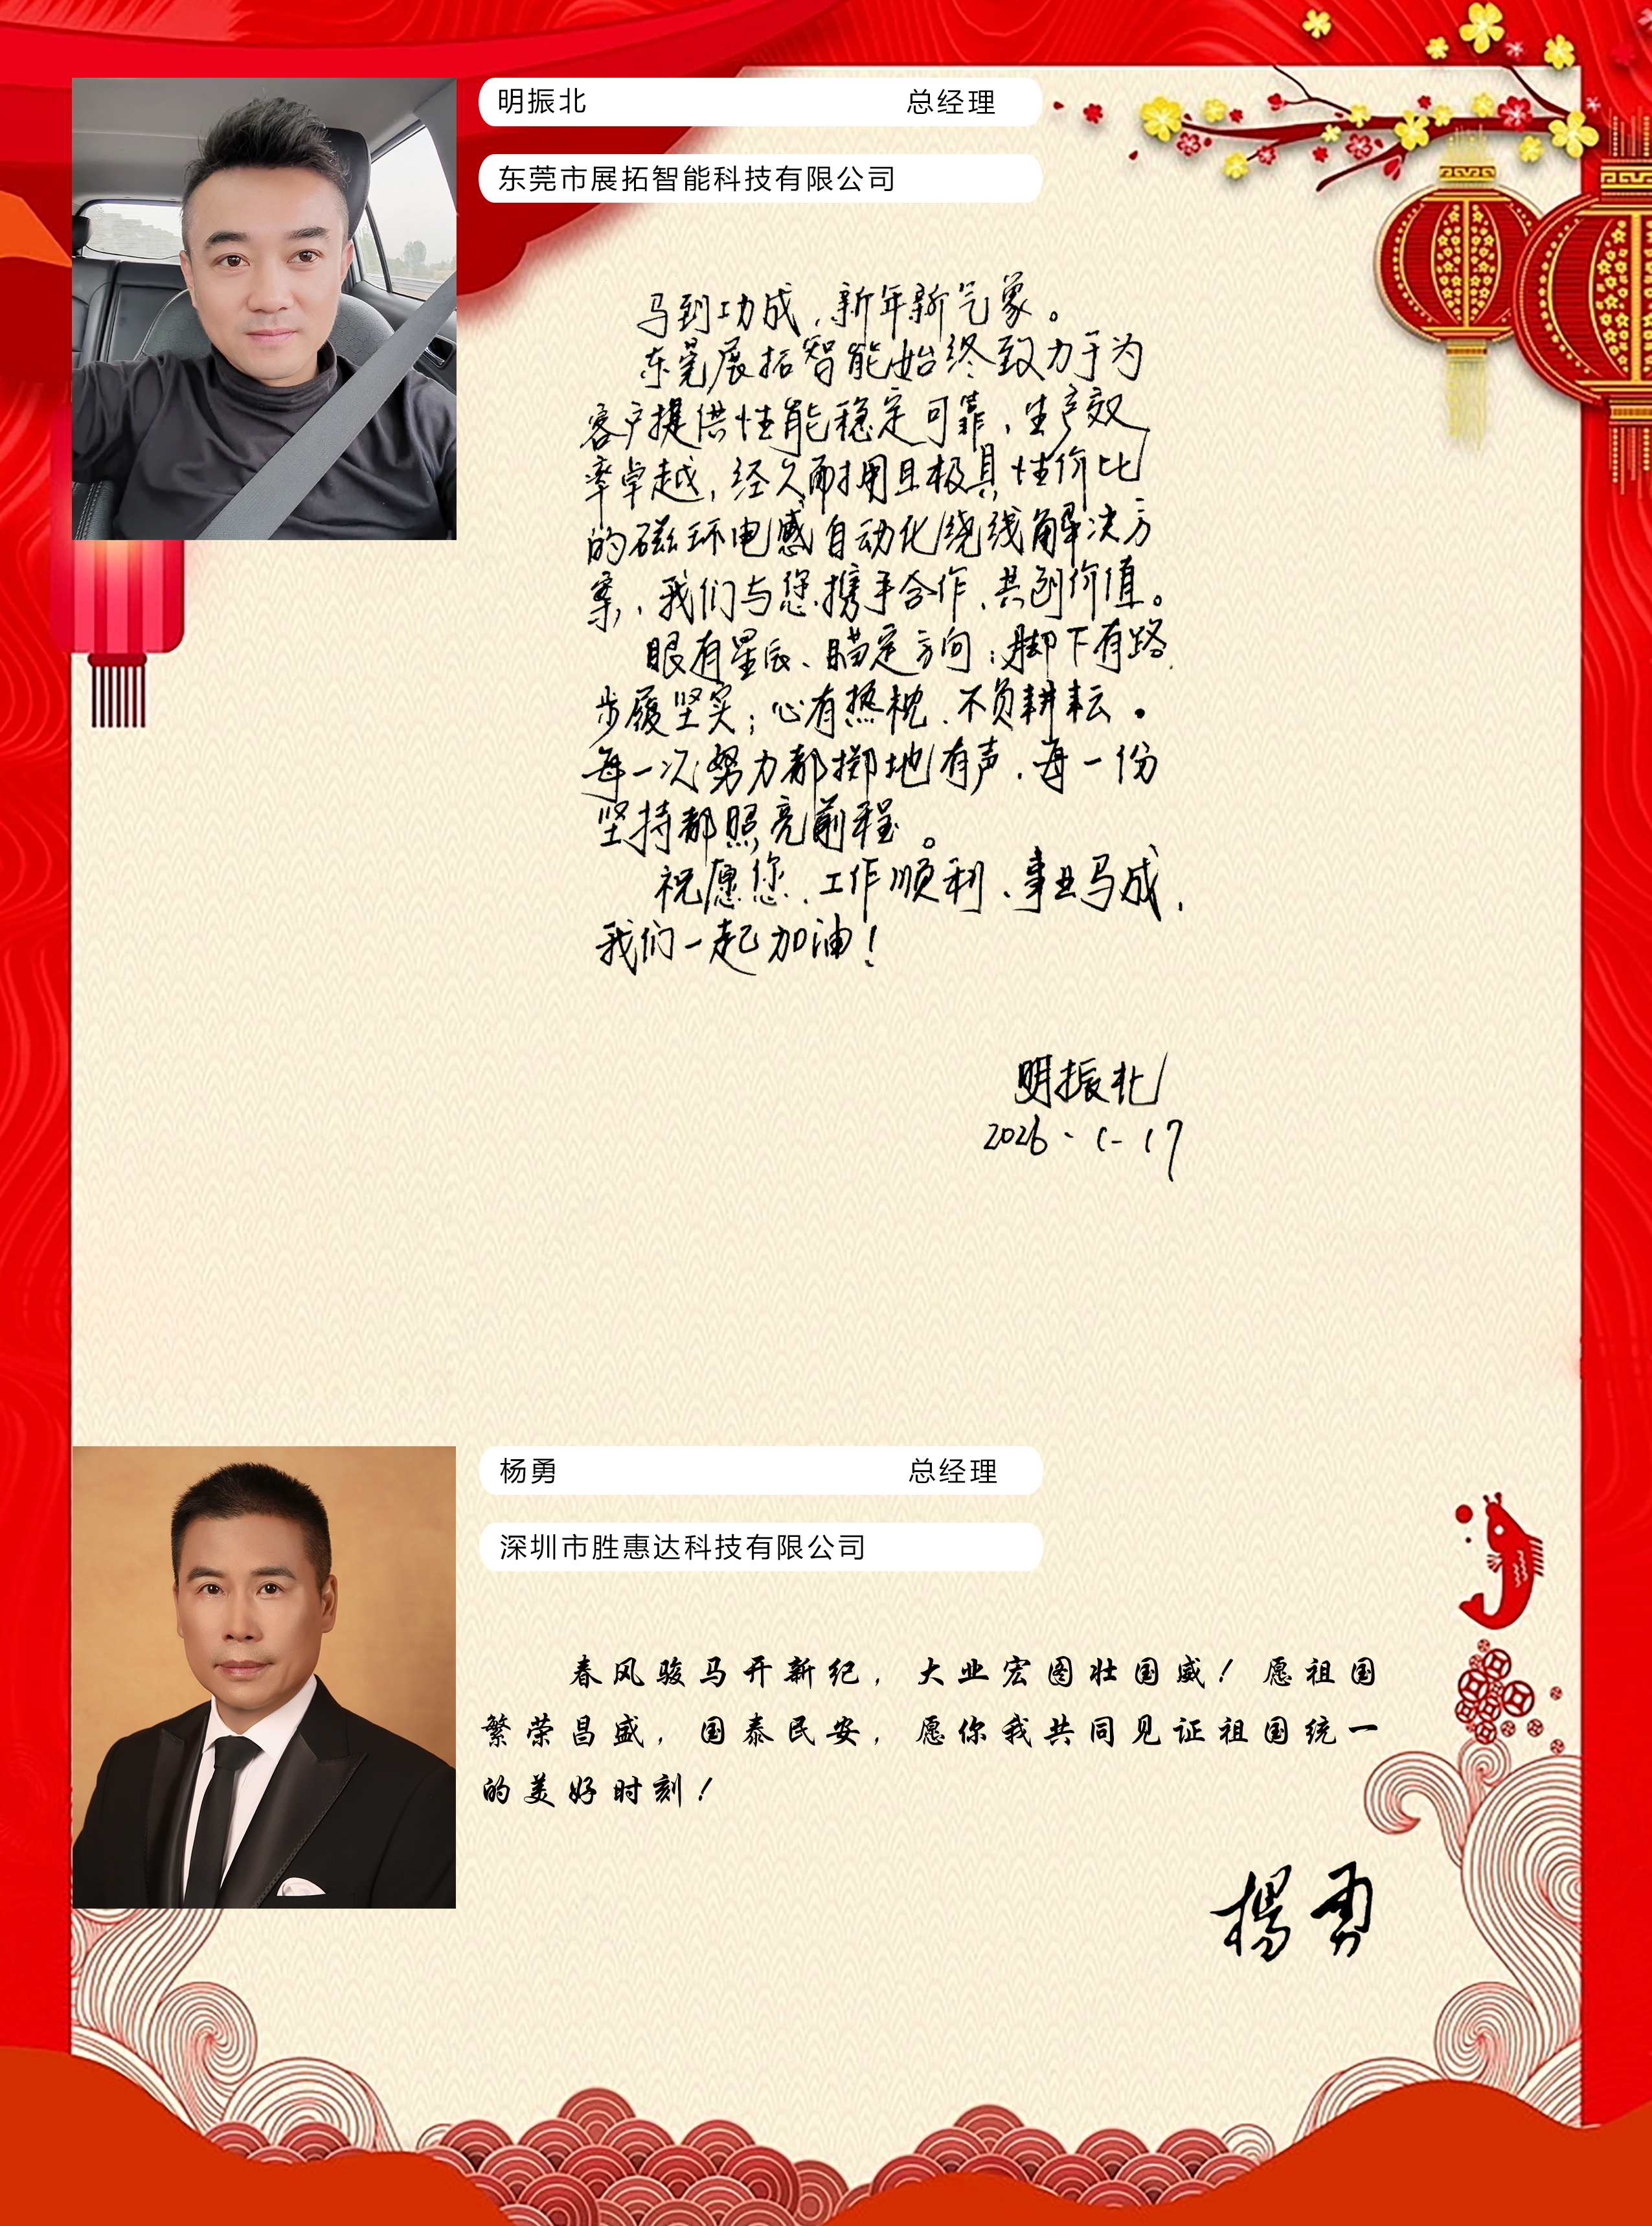 明振北 总经理
东莞市展拓智能科技有限公司
马到功成，新年新气象。
东莞展拓智能始终致力于为
客户提供性能稳定可靠，生产效
率卓越，经久耐用且极具性价比
的磁环电感自动化绕线解决方
案，我们与您携手合作、共创价值。
眼有星辰、瞄定方向；脚下有路，
步履坚实；心有热忱、不负耕耘。
每一次努力都掷地有声，每一份
坚持都照亮前程。
祝愿您、工作顺利、事业马成，
我们一起加油！
明振北
2026·1-17
杨勇 总经理
深圳市胜惠达科技有限公司
春风骏马开新纪，大业宏图壮国威！愿祖国
繁荣昌盛，国泰民安，愿你我共同见证祖国统一
的美好时刻！
杨勇